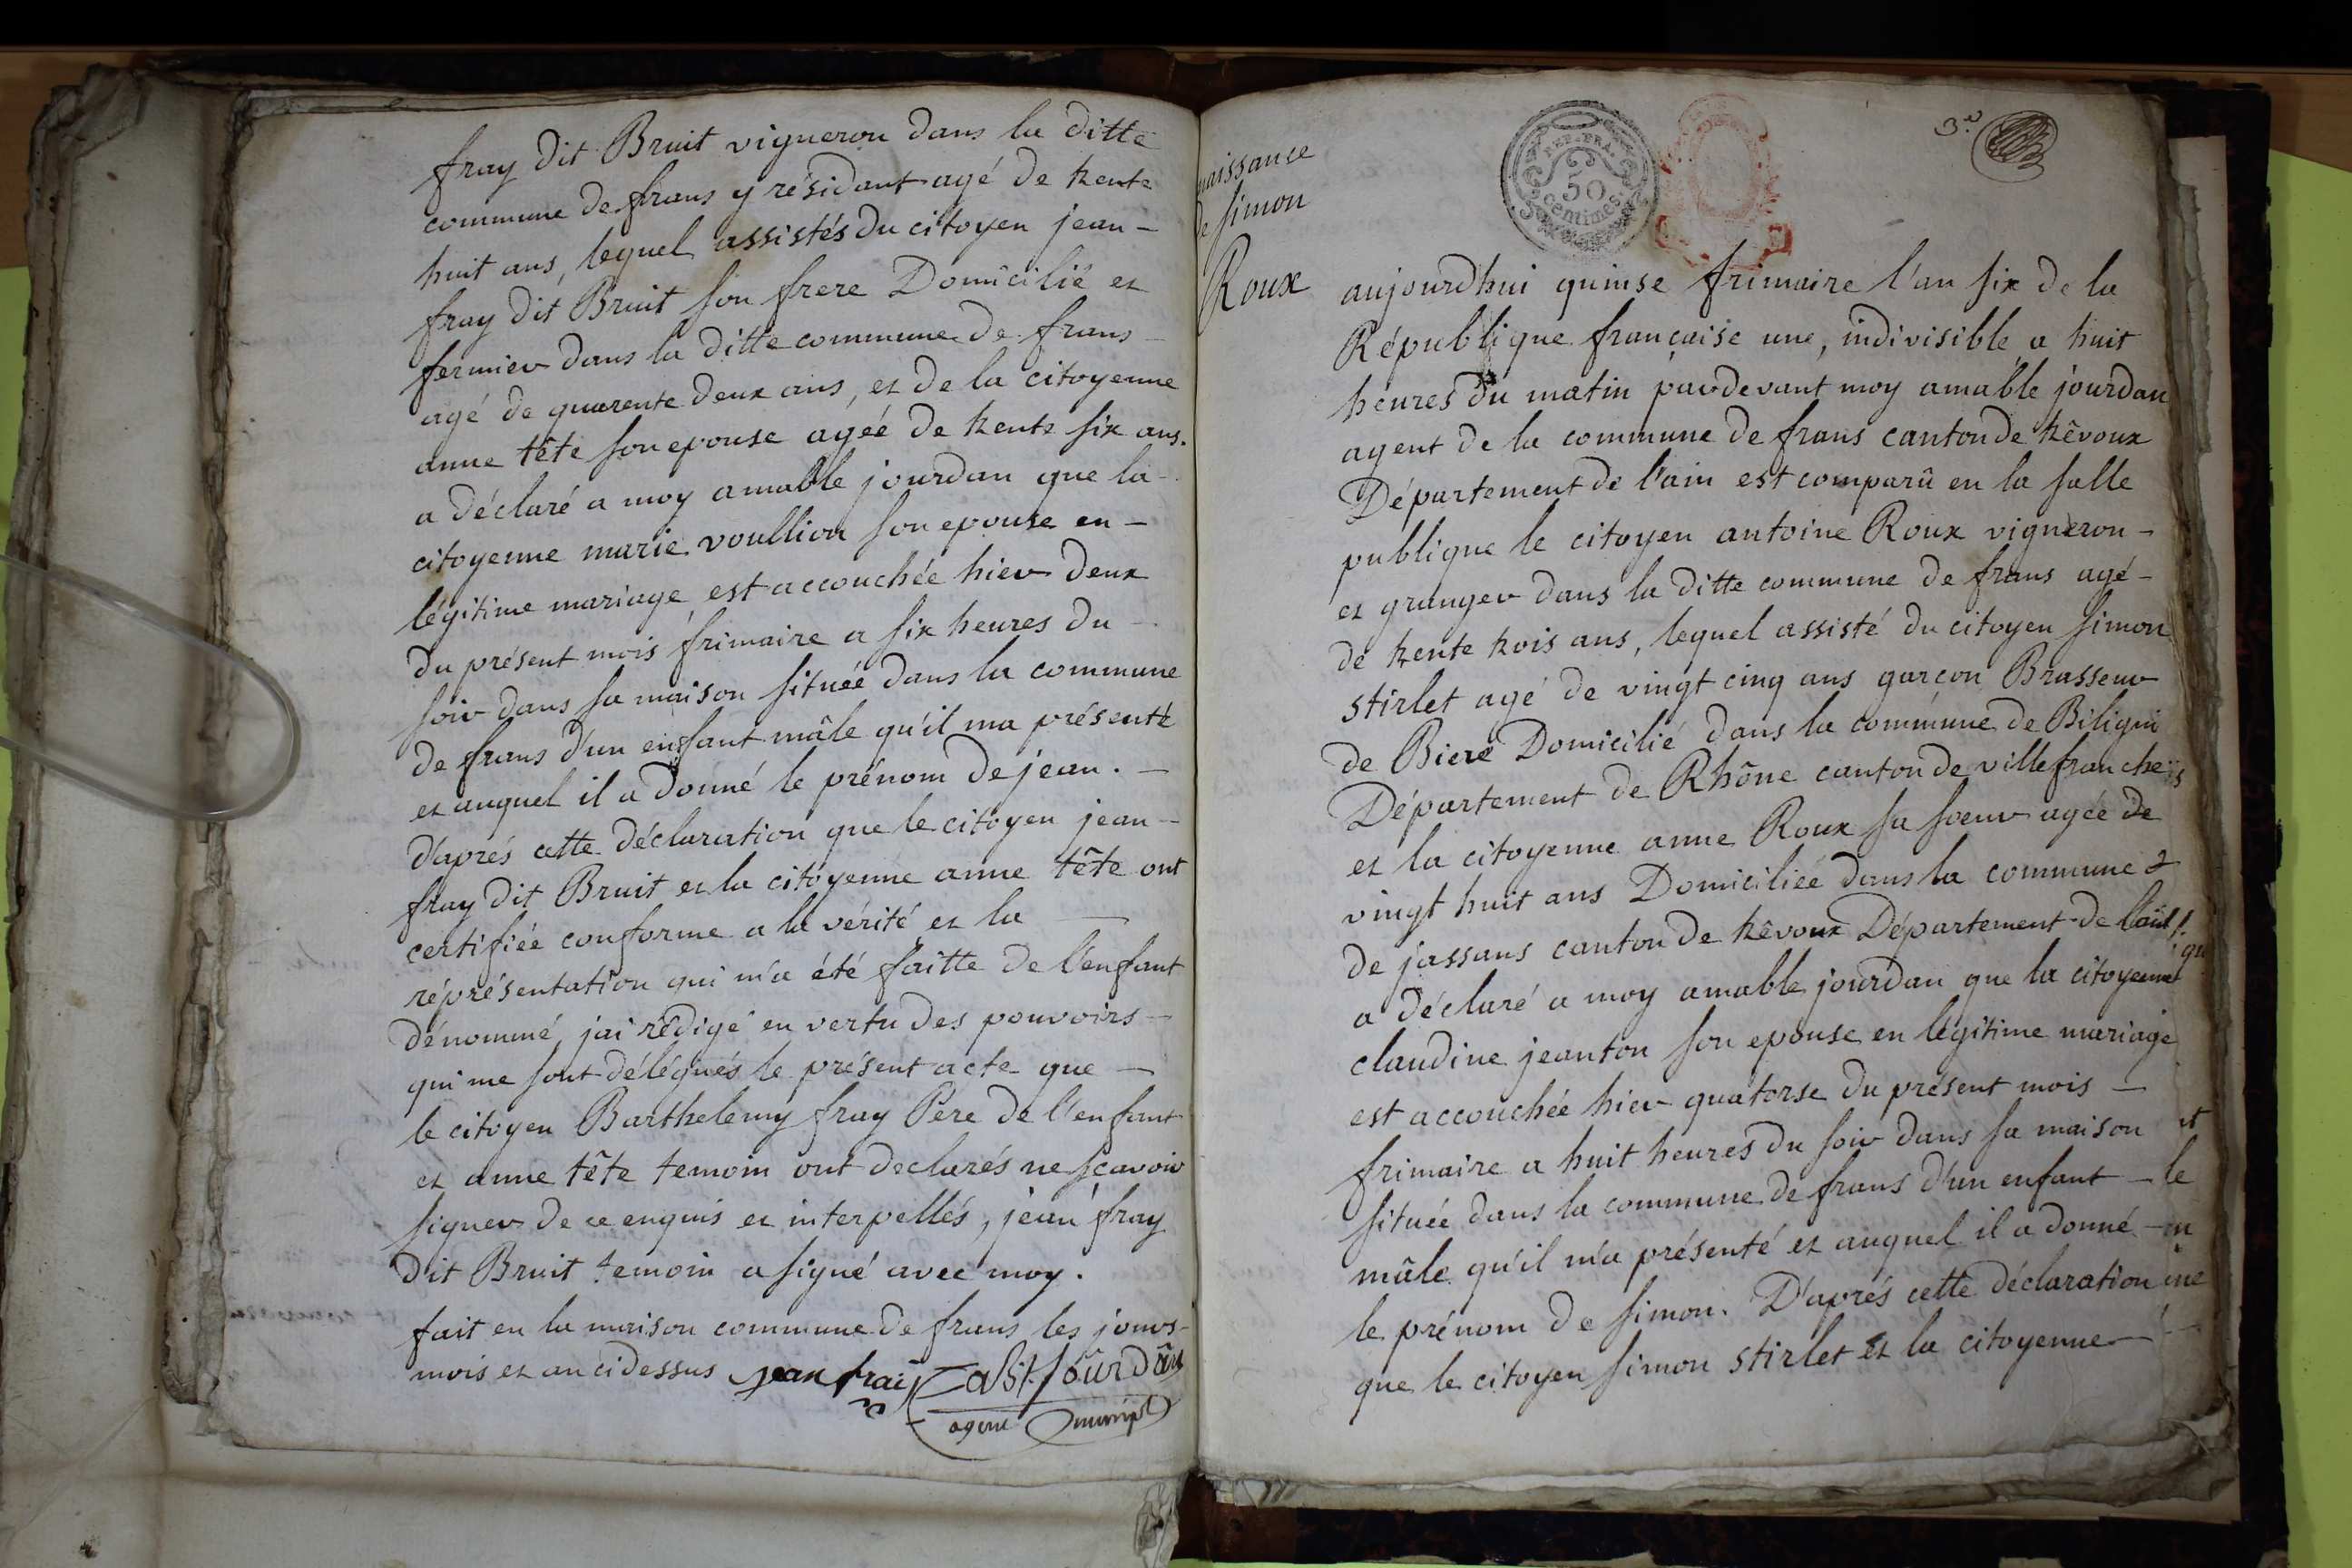 fray dit Bruit vigneron dans la ditte
commune de frans y résidant agé de trente
huit ans, lequel assistés du citoyen jean -
fray dit Bruit son frere Domicilié et
fermier dans la ditte commune de frans -
agé de quarente deux ans, et de la citoyenne
anne tête son epouse agéé de trente six ans.
a déclaré a moy amable jourdan que la -
citoyenne marie voullion son epouse en -
légitime mariage est accouchée hier deux
du présent mois frimaire a six heures du -
soir dans sa maison situéé dans la commune
de frans d'un enfant mâle qu'il ma présenté
et auquel il a donné le prénom de jean. -
d'aprés cette déclaration que le citoyen jean -
fray dit Bruit et la citoyenne anne tête ont
certifiée conforme a la vérité et la -
réprésentation qui m'a été faitte de l'enfant
dénommé, jai rédigé en vertu des pouvoirs -
qui me sont délégués le présent acte que -
le citoyen Barthelemy fray Père de l'enfant
et anne tête temoin ont declarés ne sçavoir
signer de ce enquis et interpellés, jean fray
dit Bruit temoin a signé avec moy.
fait en la maison commune de frans les jours -
mois et an cidessus jean frai jourdan
agent municipl
naissance
de simon
Roux
REP. FRA.
50
centimes
3.e
aujourd'hui quinse frimaire l'an six de la
République française une, indivisible a huit
heures du matin pardevant moy amable jourdan
agent de la commune de frans canton de trêvoux
Département de l'ain est comparû en la salle
publique le citoyen antoine Roux vigneron -
et granger dans la ditte commune de frans agé -
de trente trois ans, lequel assisté du citoyen simon
stirlet agé de vingt cinq ans garçon Brasseur
de Biere Domicilié dans la commune de Biligni
Département de Rhône canton de villefranche
et la citoyenne anne Roux sa soeur agée de
vingt huit ans Domiciliée dans la commune
de jassans canton de trêvoux Département de l'ain
a déclaré a moy amable jourdan que la citoyenne
claudine jeanton son epouse en légitime mariage
est accouchée hier quatorse du présent mois -
frimaire a huit heures du soir dans sa maison
située dans la commune de frans d'un enfant -
mâle qu'il m'a présenté et auquel il a donné -
le prénom de simon. D'aprés cette déclaration
que le citoyen simon stirlet et la citoyenne -